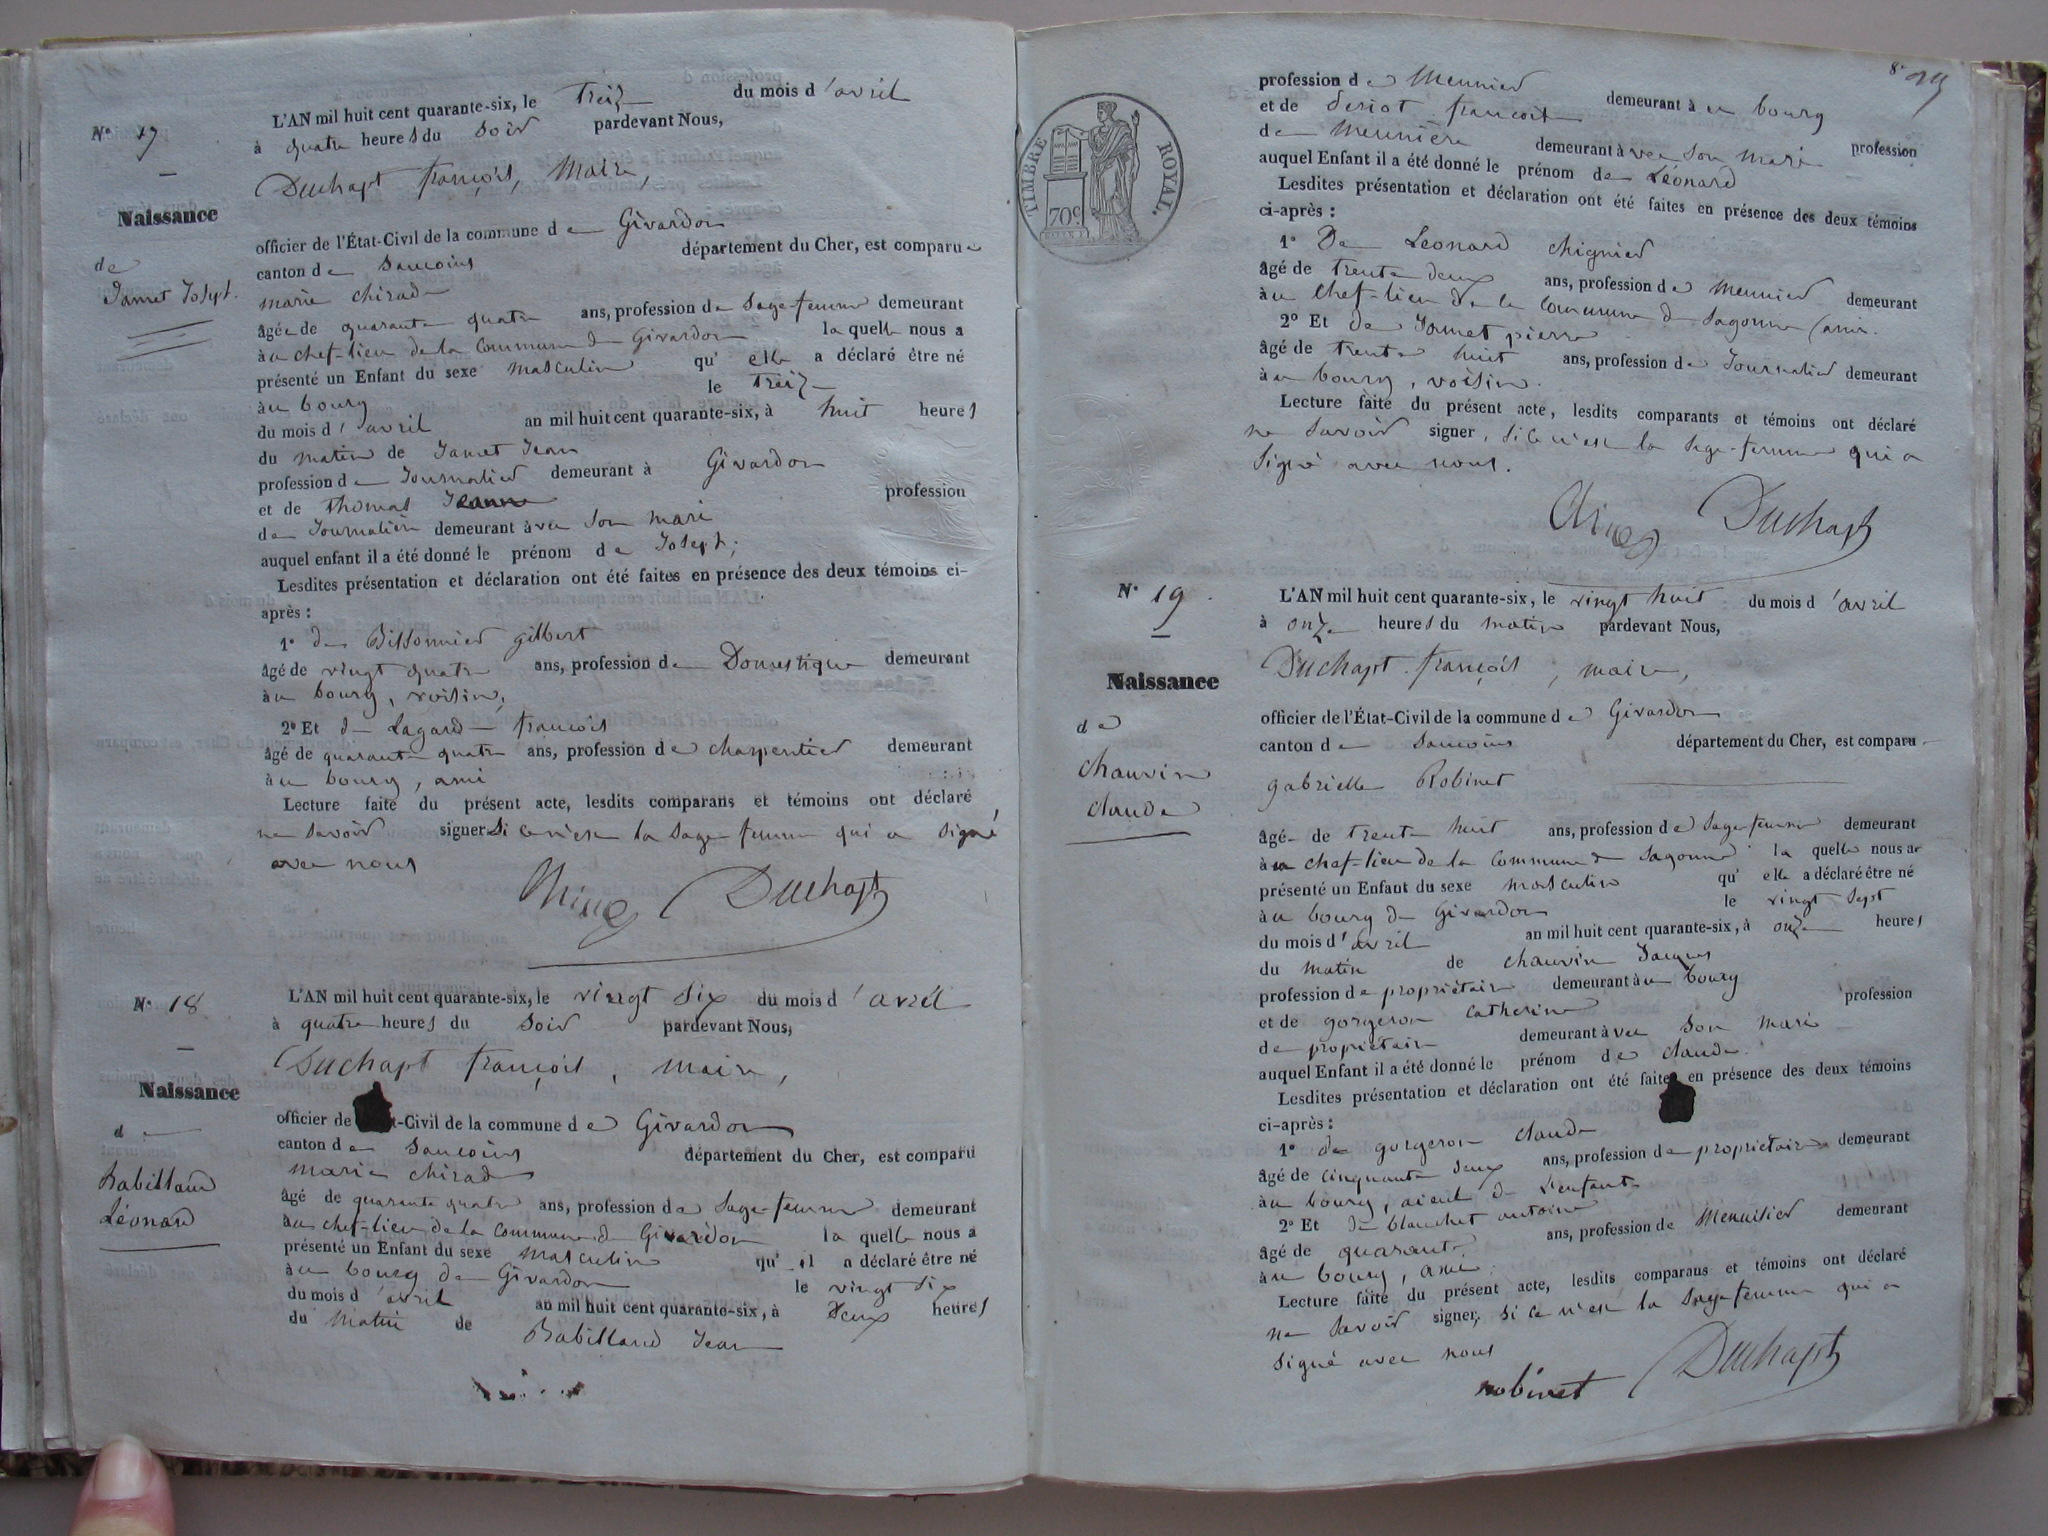 N.° 17
L'AN mil huit cent quarante-six, le treize du mois d'avril
à quatre heures du soir pardevant Nous,
Duchapt françois, Maire,
Naissance
de
Jamet Joseph.
officier de l'État-Civil de la commune de Givardon
canton de Sancoins département du Cher, est comparue
marie chirade
âgée de quarante quatre ans, profession de Sage-femme demeurant
au chef-lieu de la Commune de Givardon laquelle nous a
présenté un Enfant du sexe masculin qu'elle a déclaré être né
au bourg le treize
du mois d'avril an mil huit cent quarante-six, à huit heures
du matin de Jamet Jean
profession de Journalier demeurant à Givardon
et de thomas Jeanne profession
de Journalière demeurant avec son mari
auquel enfant il a été donné le prénom de Joseph;
Lesdites présentation et déclaration ont été faites en présence des deux témoins ci-
après :
1° de Bissonnier gilbert
âgé de vingt quatre ans, profession de Domestique demeurant
au bourg, voisin,
2° Et de Lagarde françois
âgé de quarante quatre ans, profession de charpentier demeurant
au bourg, ami
Lecture faite du présent acte, lesdits comparans et témoins ont déclaré
ne savoir signer si ce n'est la sage femme qui a signé
avec nous
Duchapt
N.° 18
L'AN mil huit cent quarante-six, le vingt six du mois d'avril
à quatre heures du soir pardevant Nous,
Duchapt françois, maire,
Naissance
de
Babillaud
Léonard
officier de t-Civil de la commune de Givardon
canton de Sancoins département du Cher, est comparu
marie chirade
âgé de quarante quatre ans, profession de Sage-femme demeurant
au chef-lieu de la Commune de Givardon laquelle nous a
présenté un Enfant du sexe masculin qu'il a déclaré être né
au bourg de Givardon le vingt six
du mois d'avril an mil huit cent quarante-six, à Deux heures
du matin de Babillaud Jean
8.e
TIMBRE ROYAL.
70c
profession de Meunier demeurant à au bourg
et de deriot françoise profession
de meunière demeurant avec son mari
auquel Enfant il a été donné le prénom de Léonard
Lesdites présentation et déclaration ont été faites en présence des deux témoins
ci-après :
1° De Léonard chignier
âgé de trente deux ans, profession de meunier demeurant
au chef-lieu de la Commune de Sagonne, ami.
2° Et de Jamet pierre
âgé de trente huit ans, profession de Journalier demeurant
au bourg, voisin.
Lecture faite du présent acte, lesdits comparants et témoins ont déclaré
ne savoir signer, si ce n'est la sage-femme qui a
signé avec nous.
Duchapt
N.° 19
L'AN mil huit cent quarante-six, le vingt huit du mois d'avril
à onze heures du matin pardevant Nous,
Duchapt françois, maire,
Naissance
de
chauvin
claude
officier de l'État-Civil de la commune de Givardon
canton de Sancoins département du Cher, est comparu
gabrielle Robinet
âgé de trente huit ans, profession de Sage-femme demeurant
au chef-lieu de la Commune de Sagonne laquelle nous a
présenté un Enfant du sexe masculin qu'elle a déclaré être né
au bourg de Givardon le vingt sept
du mois d'avril an mil huit cent quarante-six, à onze heures
du matin de chauvin Jacques
profession de propriétaire demeurant au bourg
et de gorgeron catherine profession
de propriétaire demeurant avec son mari
auquel Enfant il a été donné le prénom de claude.
Lesdites présentation et déclaration ont été faites en présence des deux témoins
ci-après :
1° de gorgeron claude
âgé de cinquante deux ans, profession de propriétaire demeurant
au bourg, aieul de l'enfant
2° Et de blanchet antoine
âgé de quarante ans, profession de Menuisier demeurant
au bourg, ami.
Lecture faite du présent acte, lesdits comparans et témoins ont déclaré
ne savoir signer, si ce n'est la sage femme qui a
signé avec nous
robinet Duchapt